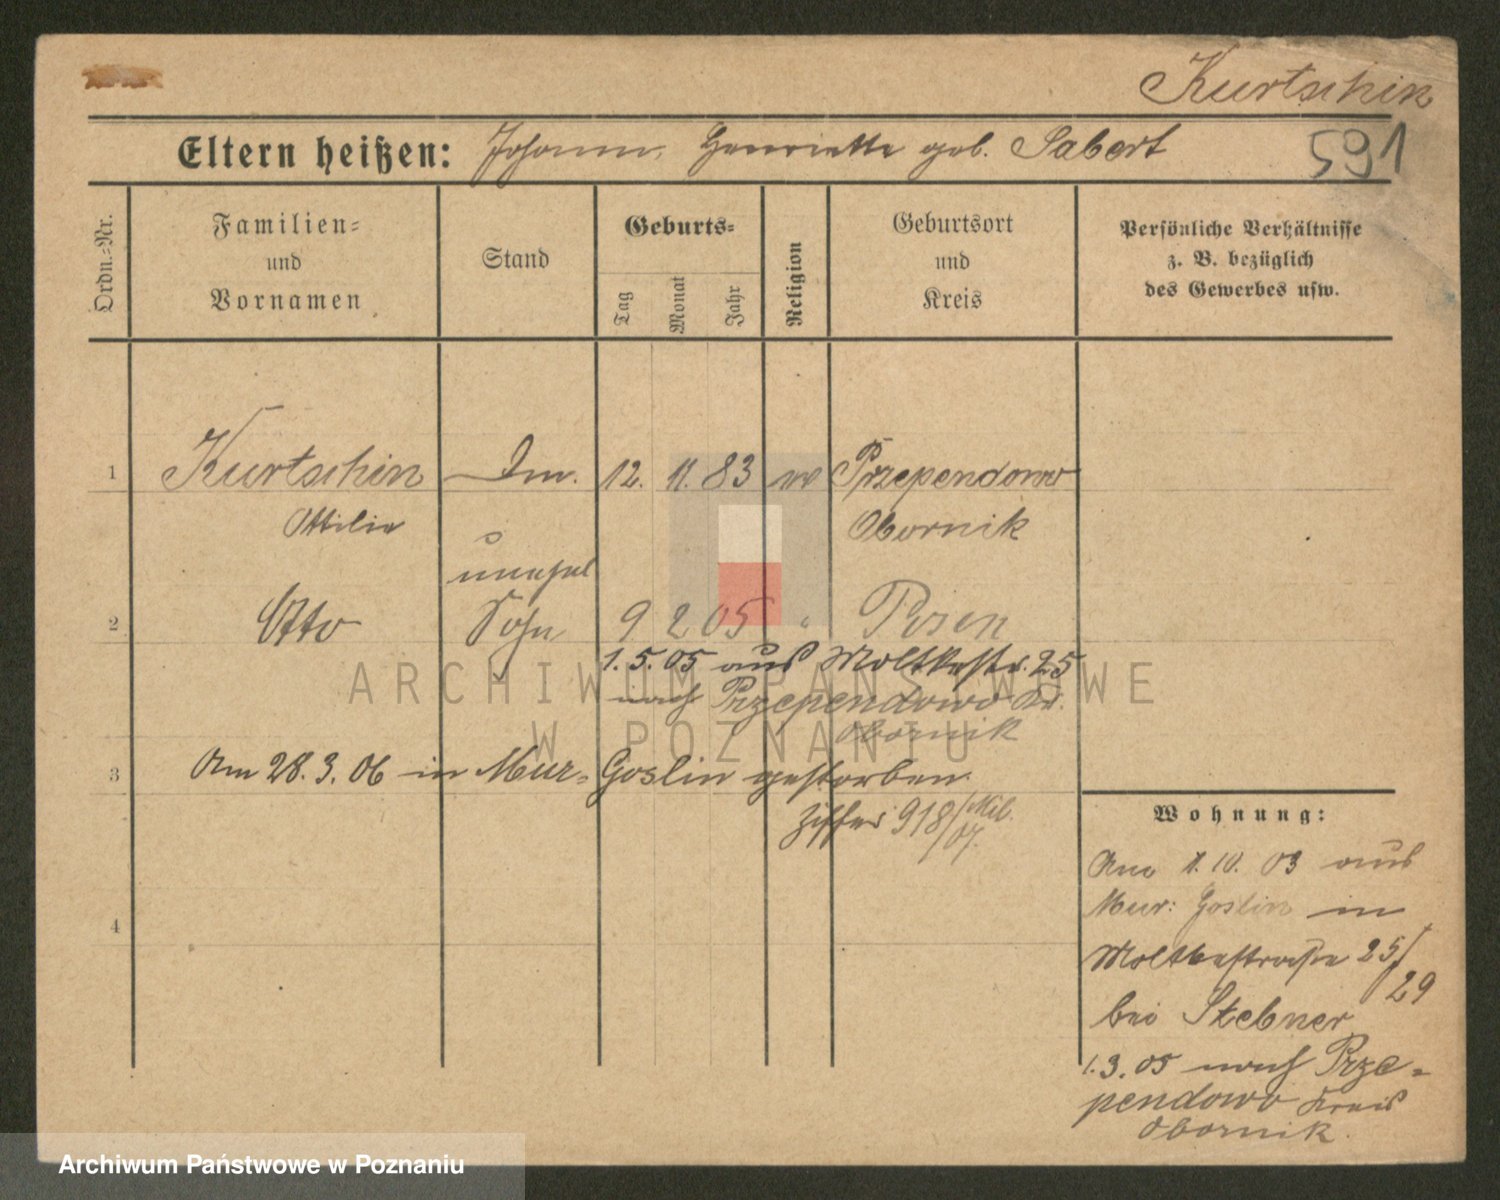 Kurtschin
Eltern heißen: Johann, Henriette geb. Sabert
591
Ordn.=Nr.
Familien=
und
Vornamen
Stand
Geburts=
Tag
Monat
Jahr
Religion
Geburtsort
und
Kreis
Persönliche Verhältnisse
z. B. bezüglich
des Gewerbes usw.
1 Kurtschin 12. 11. 83 Przependowo
Ottilie Obornik
unehel
2 Otto Sohn 9 2 05 " Posen
1. 5. 05 aus Moltkestr. 25
nach Przependowo Kr.
Obornik
3 Am 28. 3. 06 in Mur=Goslin gestorben.
Ziffer 918/Mil.
07.
4
Wohnung:
Am 1. 10. 03 aus
Mur: Goslin in
Moltkestraße 25/
29
bei Stebner
1. 3. 05 nach Prze=
pendowo Kreis
Obornik.
ARCHIWUM PAŃSTWOWE
W POZNANIU
Archiwum Państwowe w Poznaniu